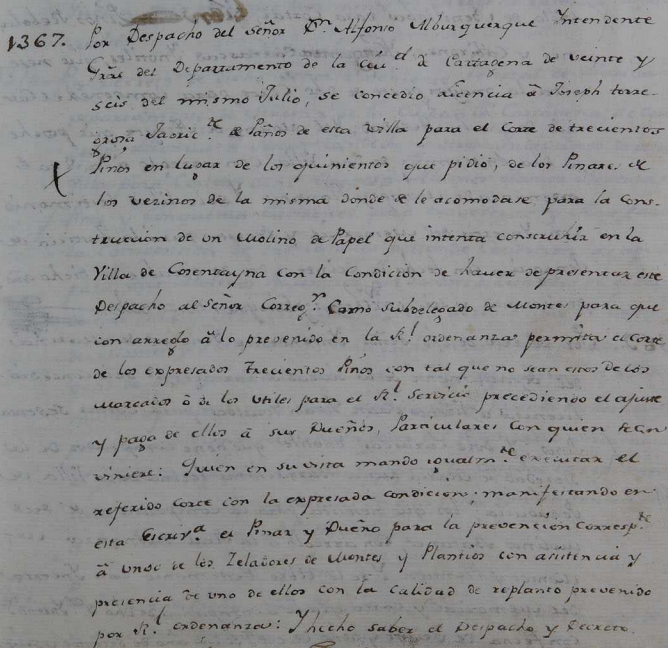 1367. Por Despacho del Señor Dn. Alfonso Alburquerque Intendente
Gral del Departamento de la Ciud. de Cartagena de veinte y
seis del mismo Julio, se concedio licencia â Joseph torre-
grosa Fabric.te de Paños de esta Villa para el Corte de trecientos
Pinos en lugar de los quinientos que pidio, de los Pinares de
los vezinos de la misma donde se le acomodase para la Cons-
truccion de un Molino de Papel que intenta construhir en la
Villa de Cosentayna con la Condicion de haver de presentar este
Despacho al Señor Correg.r Como subdelegado de Montes para que
con arreglo â lo prevenido en la Rl. ordenanza permita el Corte
de los expresados trecientos Pinos con tal que no sean estos de los
Marcados ô de los utiles para el Rl. Servicio precediendo el ajuste
y paga de ellos â sus Dueños, Particulares con quien se con
viniere: Quien en su vista mando igualm.te executar el
referido Corte con la expresada condicion; manifestando en
esta Escriv.a el Pinar y Dueño para la prevencion Corresp.te
â unos de los Zeladores de Montes y Plantios con asistencia y
presencia de uno de ellos con la Calidad de replanto prevenido
por Rl. ordenanza: Y hecho saber el Despacho y Decreto